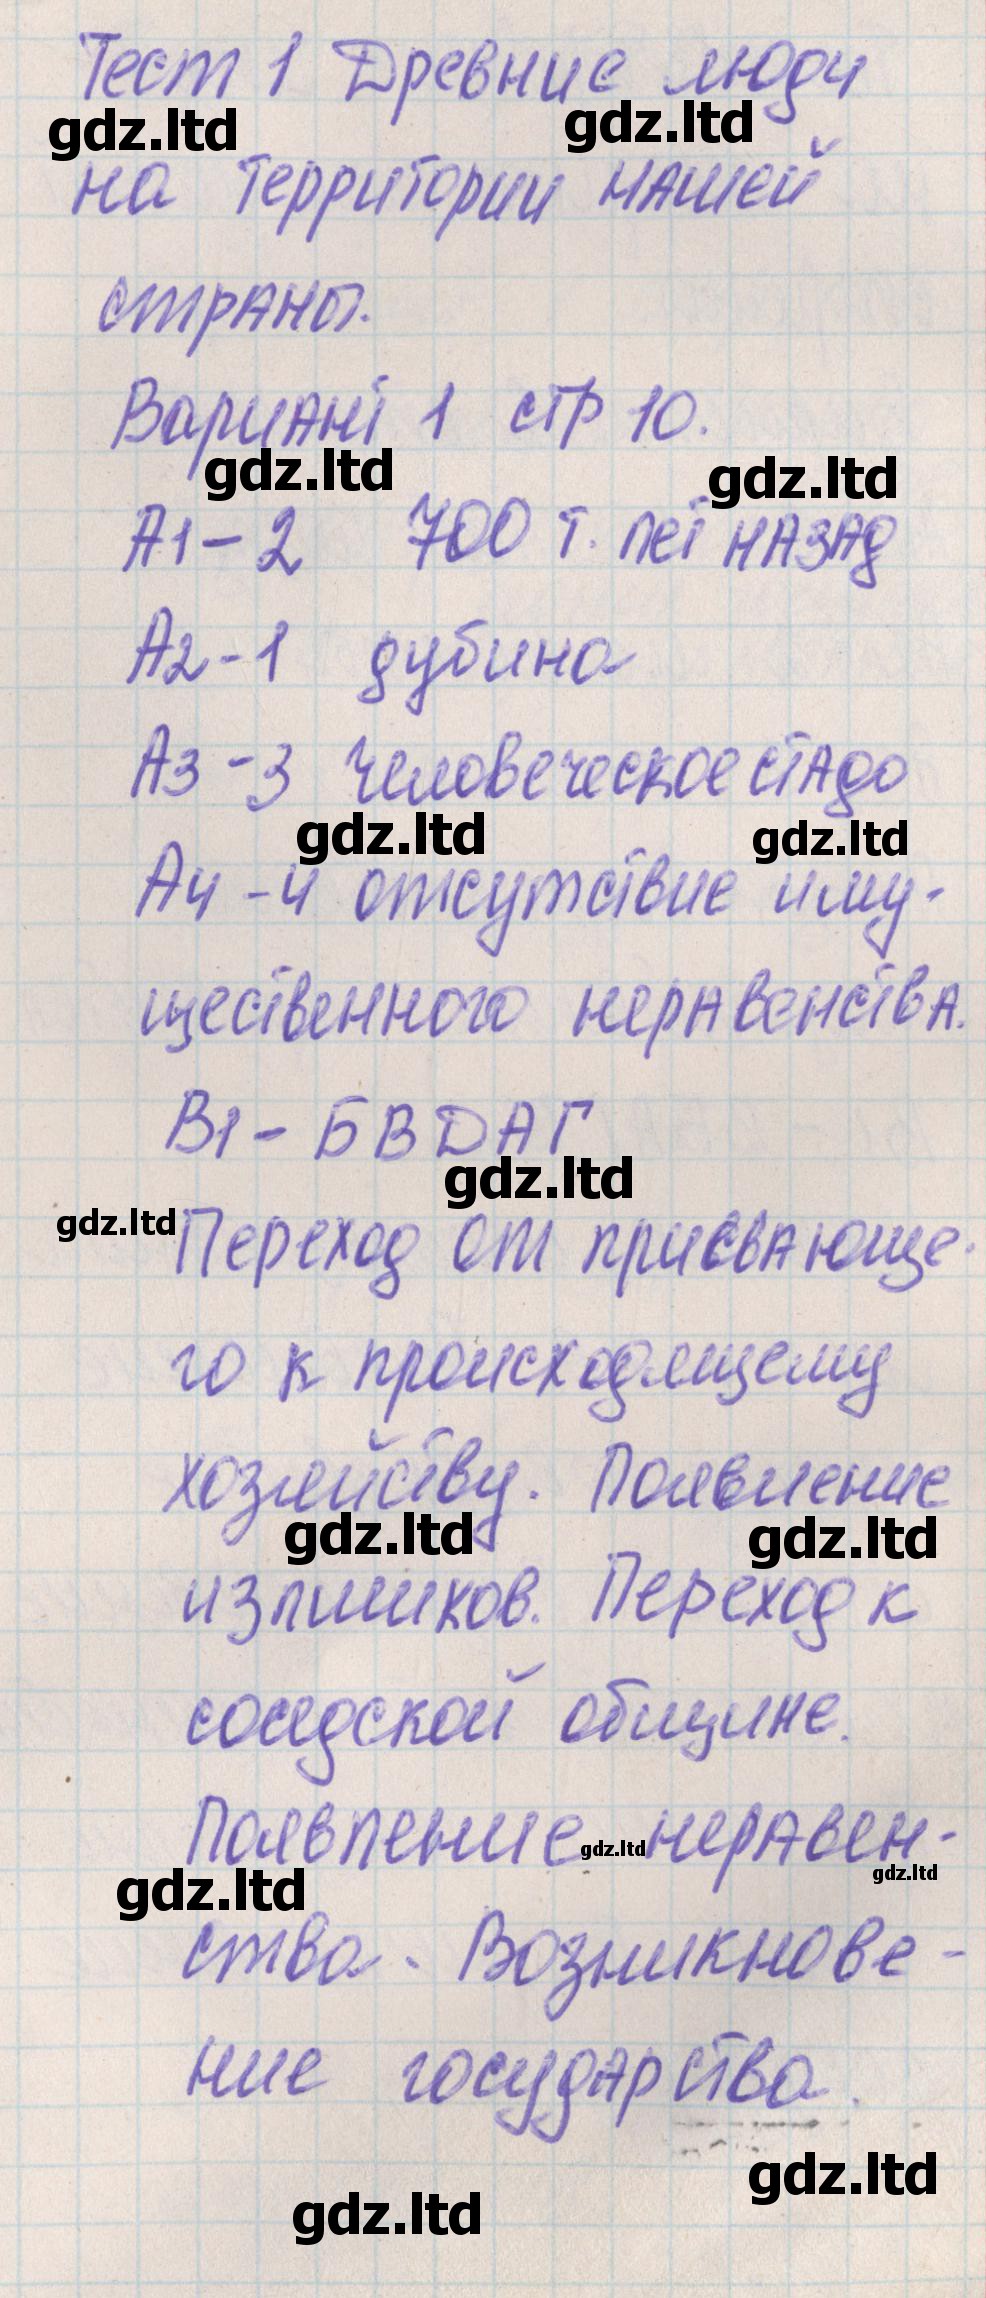 Тест 1 Древние люди
gdz.ltd gdz.ltd
на территории нашей
страны.
Вариант 1 стр 10.
gdz.ltd gdz.ltd
А1-2 700 т. лет назад
А2-1 дубина
А3-3 человеческое стадо
gdz.ltd gdz.ltd
А4-4 отсутствие иму-
щественного неравенства.
В1- БВДАГ
gdz.ltd
gdz.ltd Переход от присвающе-
го к происходящему
хозяйству. Появление
gdz.ltd gdz.ltd
излишков. Переход к
соседской общине.
Появление gdz.ltd неравен-
gdz.ltd gdz.ltd
ства. Возникнове-
ние государства.
gdz.ltd
gdz.ltd